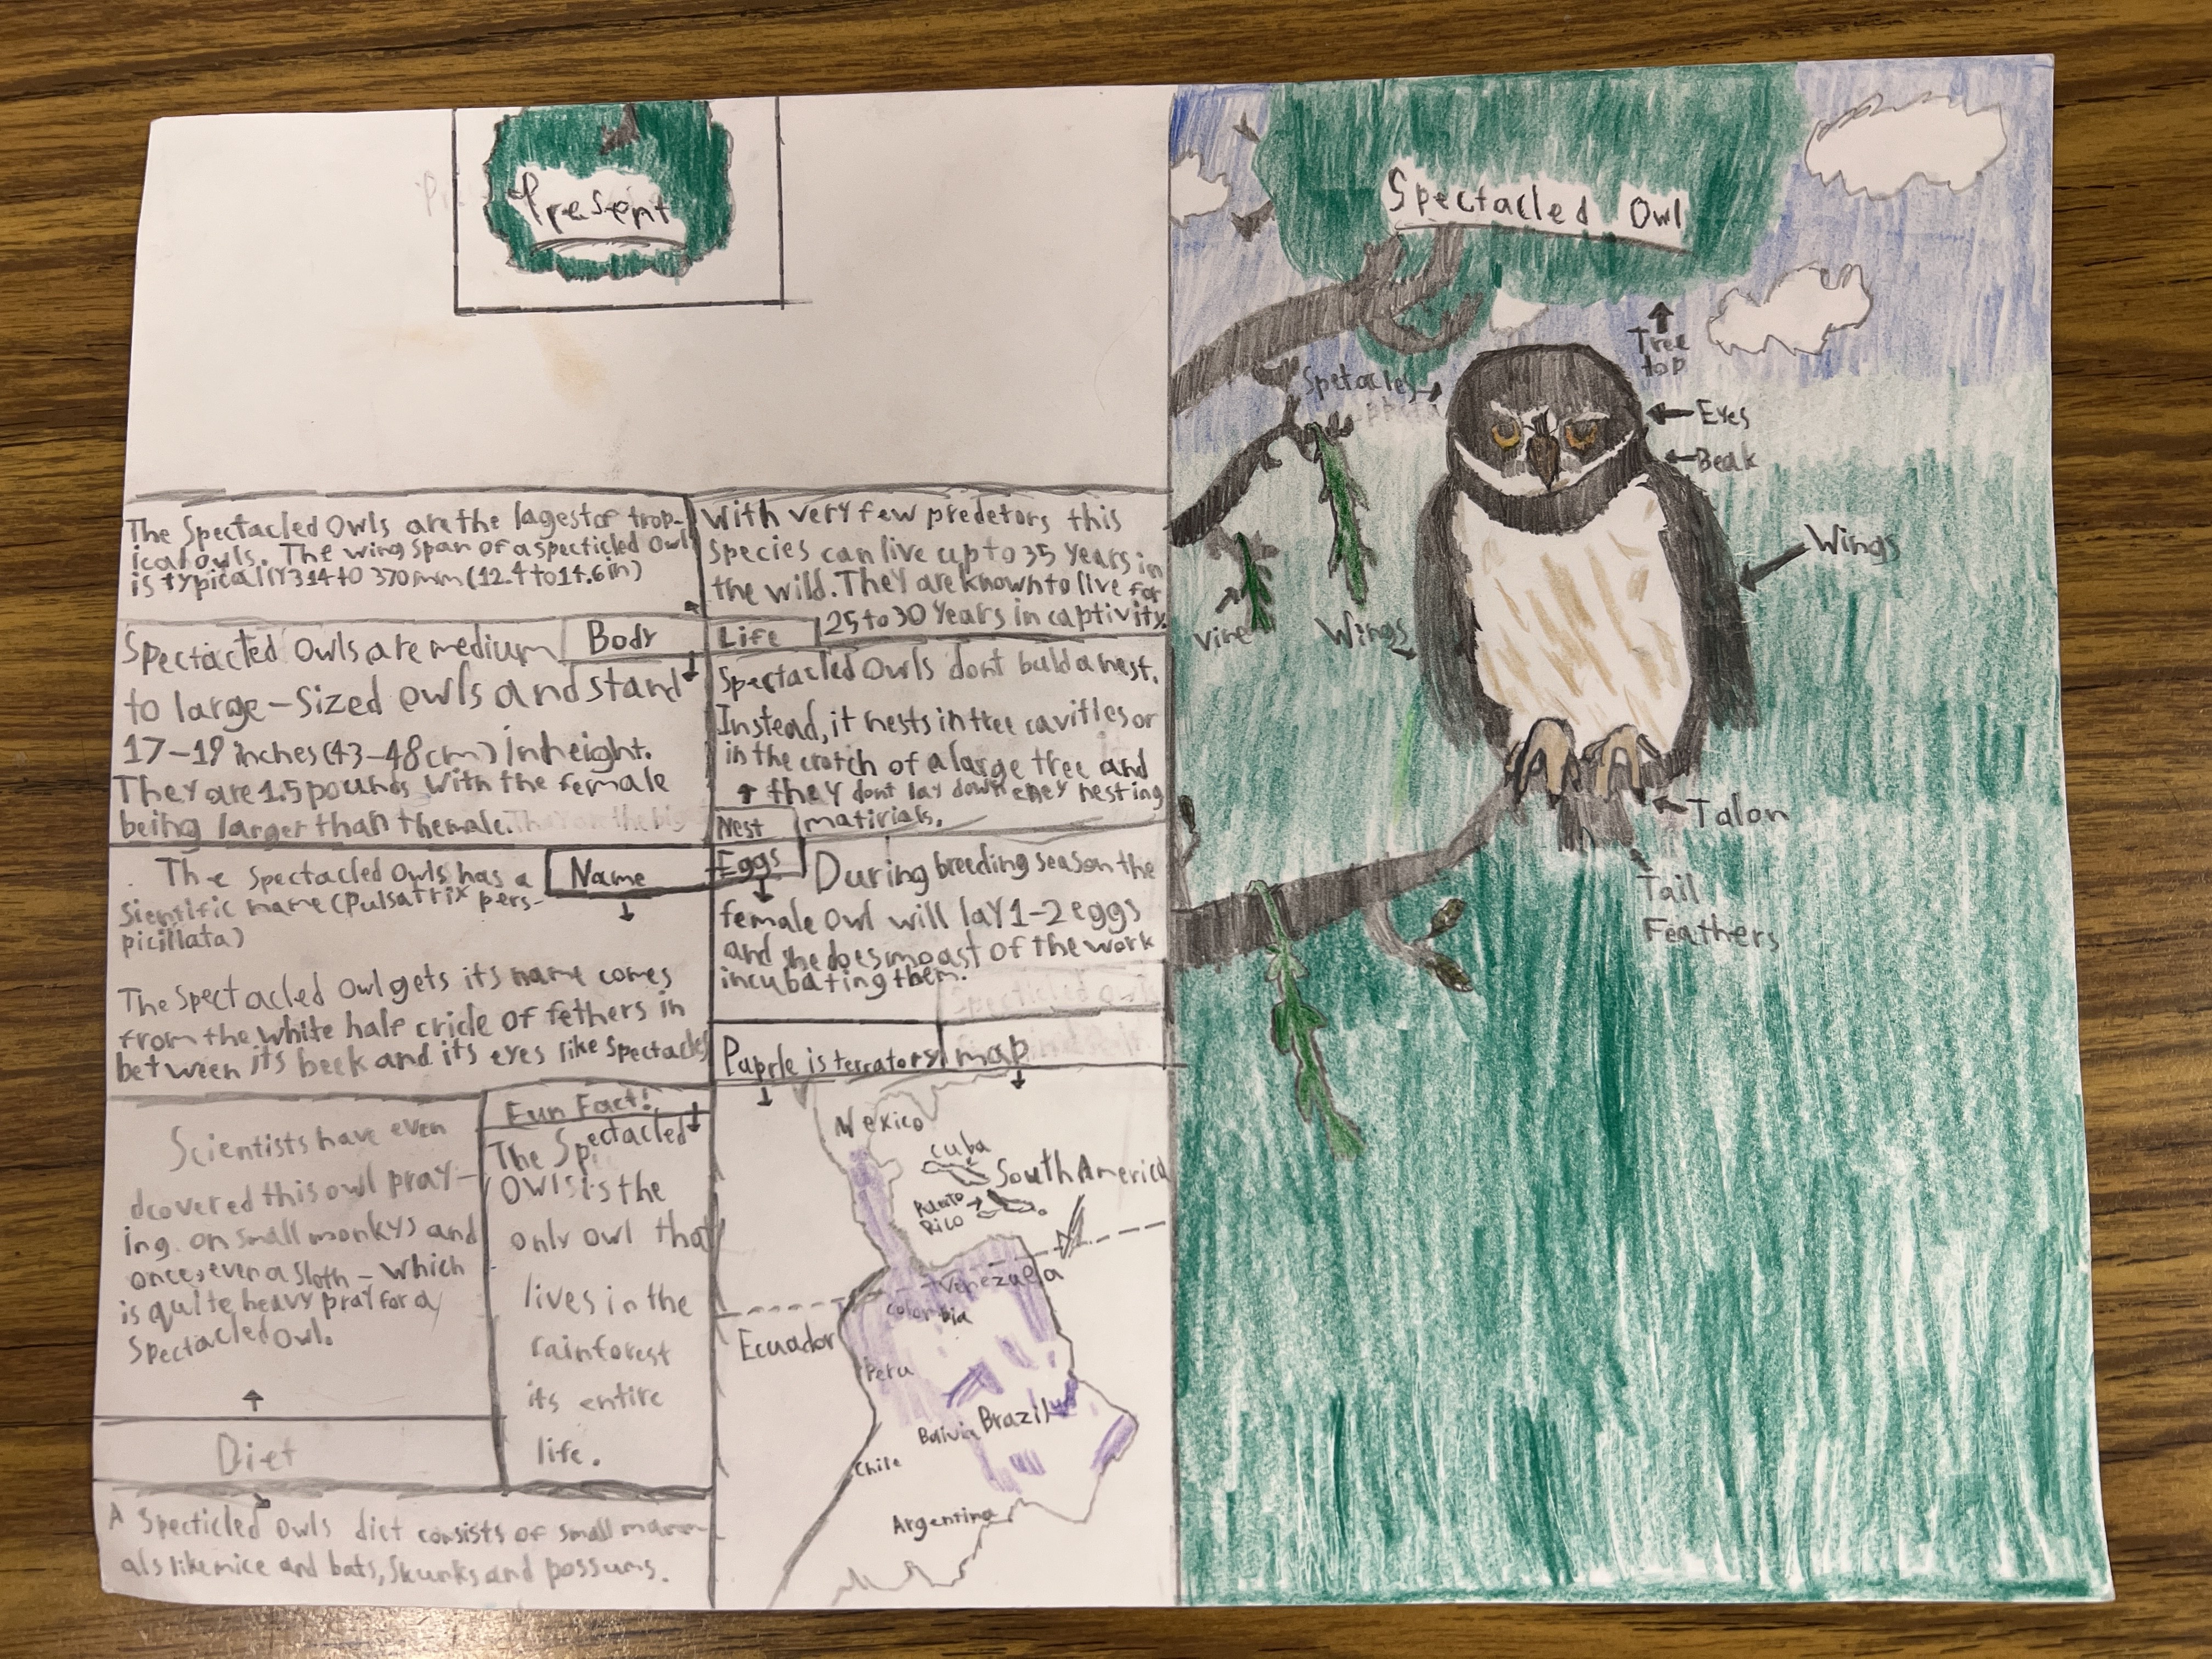 Present
The Spectacled Owls are the lagest of trop-
ical owls. The wing span of a specticled Owl
is typically 314 to 370 mm (12.4 to 14.6 in)
Body
Spectacled Owls are medium
to large-sized owls and stand
17-19 inches (43-48cm) in height.
They are 1.5 pounds with the female
being larger than the male.
Name
The Spectacled Owls has a
Sientific name (Pulsatrix pers-
picillata)
The Spectacled Owl gets its name comes
from the white half cricle of fethers in
between its beek and its eyes like spectacles
Scientists have even
dcovered this owl pray-
ing. on small monkys and
once, even a sloth - which
is quite heavy pray for a
Spectacled owl.
Diet
A Specticled Owls diet consists of small mamm
als like mice and bats, skunks and possums.
Fun Fact!
The Spectacled
Owls is the
only owl that
lives in the
rainforest
its entire
life.
With very few predetors this
species can live up to 35 years in
the wild. They are known to live for
25 to 30 years in captivity.
Life
Spectacled Owls dont buld a nest.
Instead, it nests in tree cavities or
in the crotch of a large tree and
they dont lay down eney nesting
matirials.
Nest
Eggs
During breeding season the
female owl will lay 1-2 eggs
and she does moast of the work
incubating them.
Paprle is terratory
map
Mexico
Cuba
South America
Rico
Venezuela
Colombia
Ecuador
Peru
Brazil
Bolivia
Chile
Argentina
Spectacled Owl
Tree
top
Spetacles
Eyes
Beak
Wings
Wings
vine
Talon
Tail
Feathers